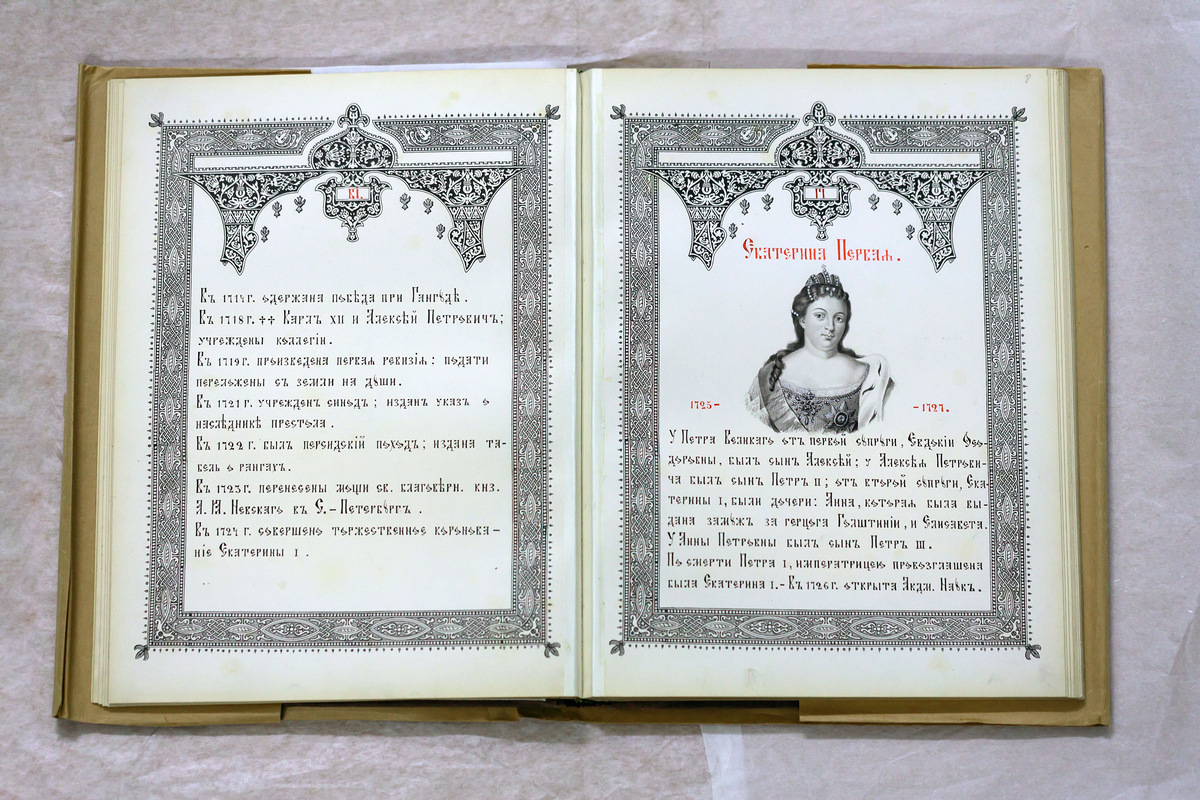 Въ 1714 г. одержана побѣда при Гангѹдѣ.
Въ 1718 г. ++ Карлъ XII и Алексѣй Петровичъ;
учреждены коллегіи.
Въ 1719 г. произведена первая ревизія: подати
переложены съ земли на дѹши.
Въ 1721 г. учрежденъ синодъ; изданъ указъ о
наслѣдникѣ престола.
Въ 1722 г. былъ персидскій походъ; издана та-
бель о рангахъ.
Въ 1723 г. перенесены мощи св. благовѣрн. кнз.
А. Невскаго въ С.-Петербѹргъ.
Въ 1724 г. совершено торжественное коронова-
ніе Екатерины I.
8
ГІ
Екатерина Первая.
1725- -1727.
У Петра Великаго отъ первой сѹпрѹги, Евдокіи Ѳео-
доровны, былъ сынъ Алексѣй; у Алексѣя Петрови-
ча былъ сынъ Петръ II; отъ второй сѹпрѹги, Ека-
терины I, были дочери: Анна, которая была вы-
дана замѹжъ за герцога Голштиніи, и Елисавета.
У Анны Петровны былъ сынъ Петръ III.
По смерти Петра I, императрицею провозглашена
была Екатерина I.- Въ 1726 г. открыта Акдм. Наѹкъ.